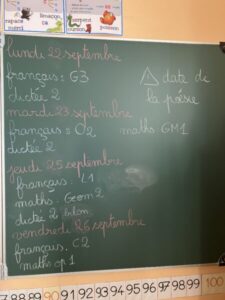 rapace
limaçon
serpent
poisson
lundi 22 septembre
français : G3
dictée 2
⚠ date de
la poésie
mardi 23 septembre
français : O2
maths GM1
dictée 2
jeudi 25 septembre
français : L1
maths : Geom 2
dictée 2 bilan
vendredi 26 septembre
français, C2
maths op 1
87 88 89 90 91 92 93 94 95 96 97 98 99 100